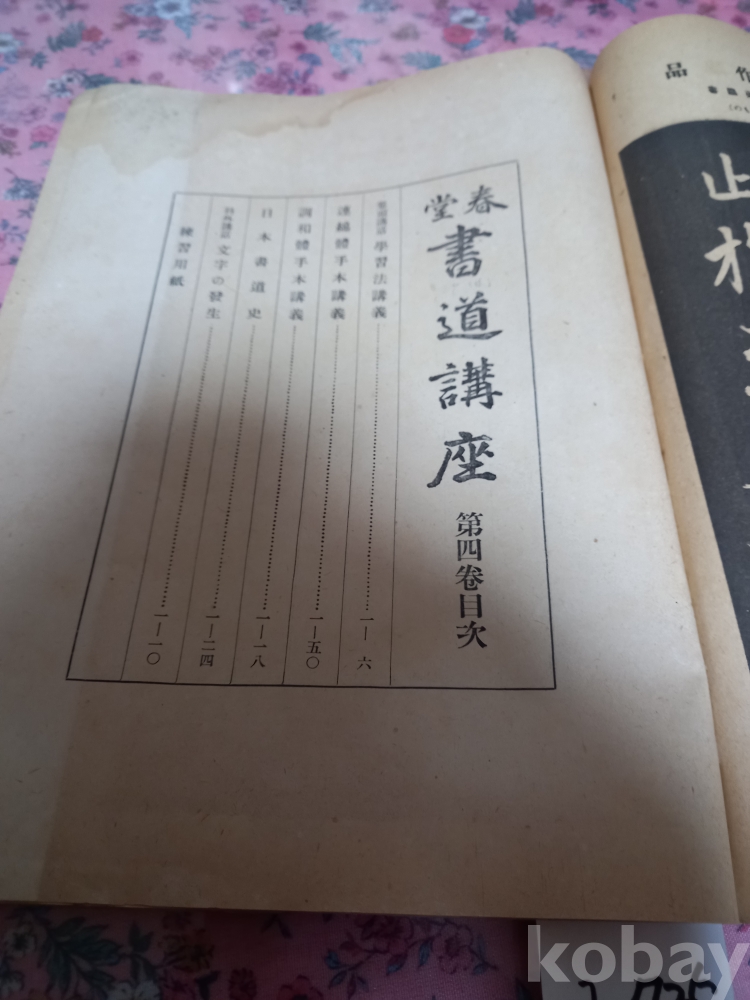 作品
止
春堂
書道講座
第四卷目次
學習法講義 一—六
連綿體手本講義
調和體手本講義 一—五〇
日本書道史 一—一八
科外講話 文字の發生 一—二四
練習用紙 一—一〇
kobay